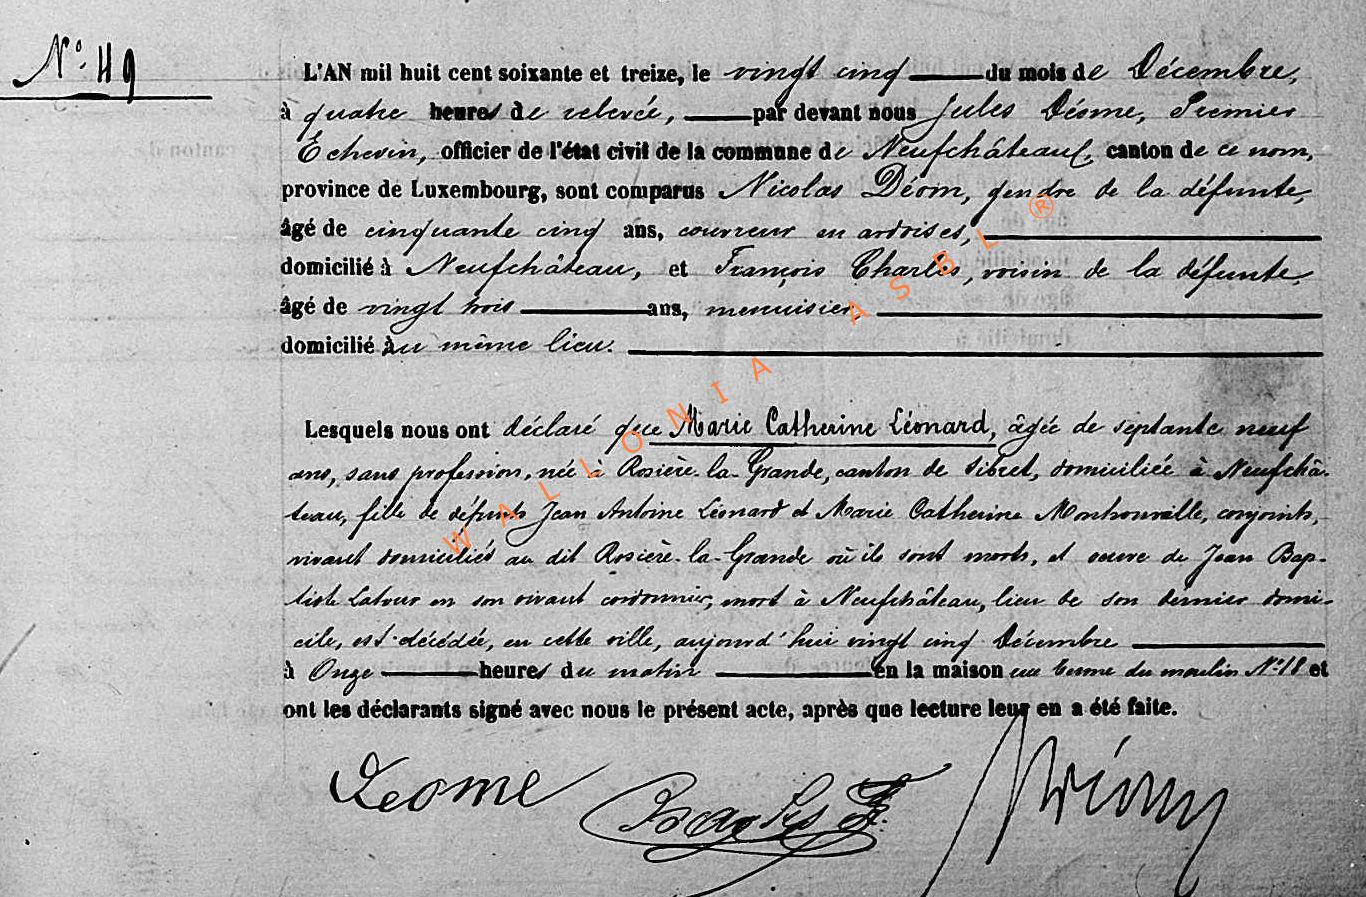 N° 49
L'AN mil huit cent soixante et treize, le vingt cinq du mois de Décembre,
à quatre heures de relevée, par devant nous Jules Déome, Premier
Echevin, officier de l'état civil de la commune de Neufchâteau, canton de ce nom,
province de Luxembourg, sont comparus Nicolas Déom, gendre de la défunte,
âgé de cinquante cinq ans, couvreur en ardoises,
domicilié à Neufchâteau, et François Charles, voisin de la défunte,
âgé de vingt trois ans, menuisier,
domicilié au même lieu.
Lesquels nous ont déclaré que Marie Catherine Léonard, âgée de septante neuf
ans, sans profession, née à Rosière-la-Grande, canton de Sibret, domiciliée à Neufchâ-
teau, fille de défunts Jean Antoine Léonard et Marie Catherine, conjoints,
vivant domiciliés au dit Rosière-la-Grande où ils sont morts, et veuve de Jean Bap-
tiste Latour en son vivant cordonnier, mort à Neufchâteau, lieu de son dernier domi-
cile, est décédée, en cette ville, aujourd'hui vingt cinq Décembre
à Onze heures du matin en la maison du moulin N° 18 et
ont les déclarants signé avec nous le présent acte, après que lecture leur en a été faite.
Déome Charles F. NDéom
WALLONIA ASBL ®